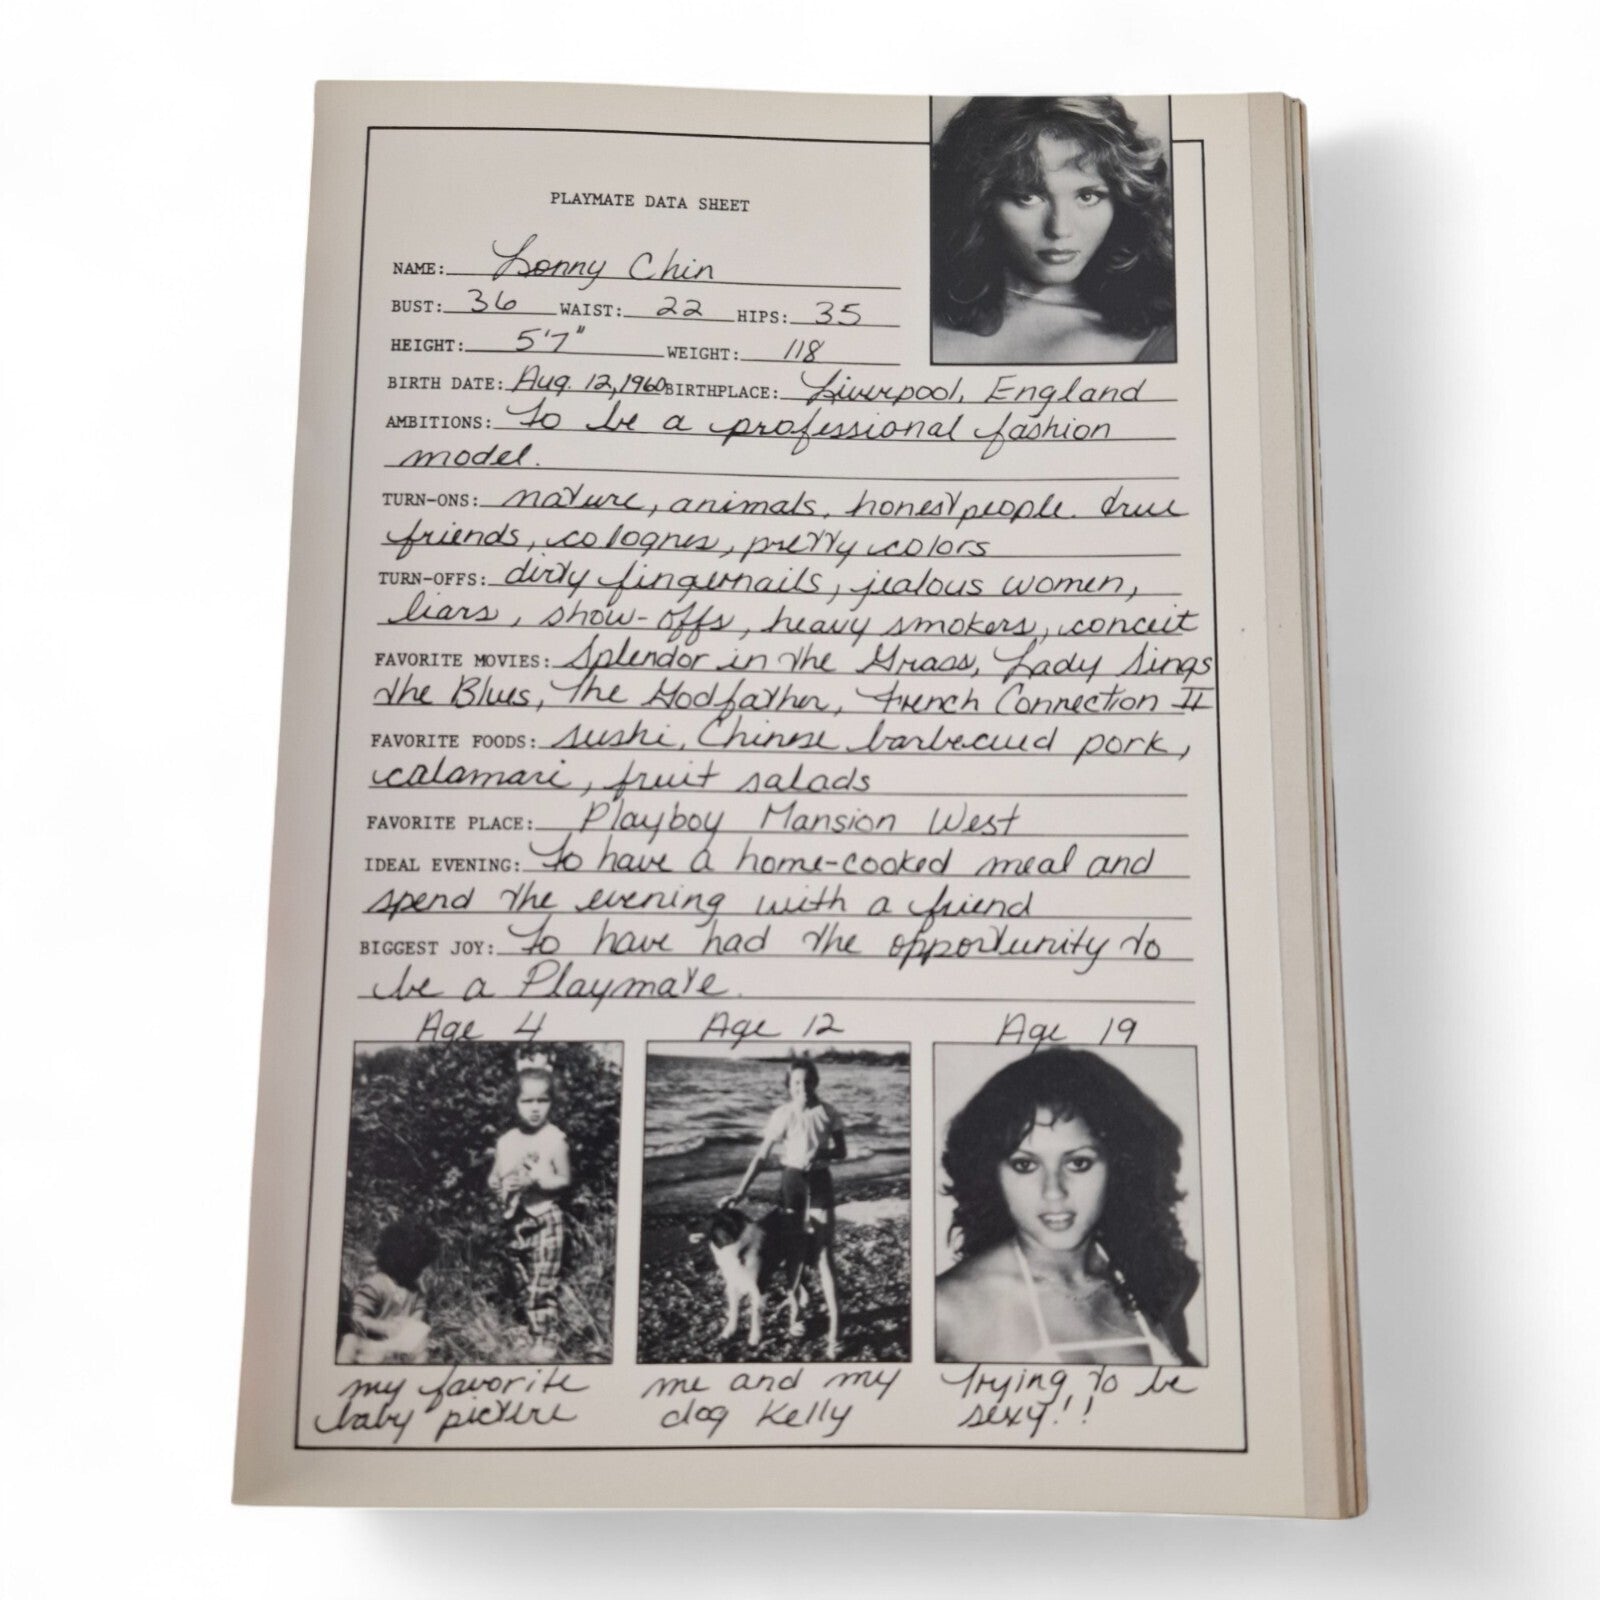 PLAYMATE DATA SHEET
NAME: Lonny Chin
BUST: 36 WAIST: 22 HIPS: 35
HEIGHT: 5'7" WEIGHT: 118
BIRTH DATE: Aug. 12, 1960 BIRTHPLACE: Liverpool, England
AMBITIONS: To be a professional fashion
model.
TURN-ONS: nature, animals, honest people. true
friends, colognes, pretty colors
TURN-OFFS: dirty fingernails, jealous women,
liars, show-offs, heavy smokers, conceit
FAVORITE MOVIES: Splendor in the Grass, Lady Sings
the Blues, The Godfather, French Connection II
FAVORITE FOODS: sushi, Chinese barbecued pork,
calamari, fruit salads
FAVORITE PLACE: Playboy Mansion West
IDEAL EVENING: To have a home-cooked meal and
spend the evening with a friend
BIGGEST JOY: To have had the opportunity to
be a Playmate.
Age 4 Age 12 Age 19
my favorite baby picture
me and my dog Kelly
Trying to be sexy!!